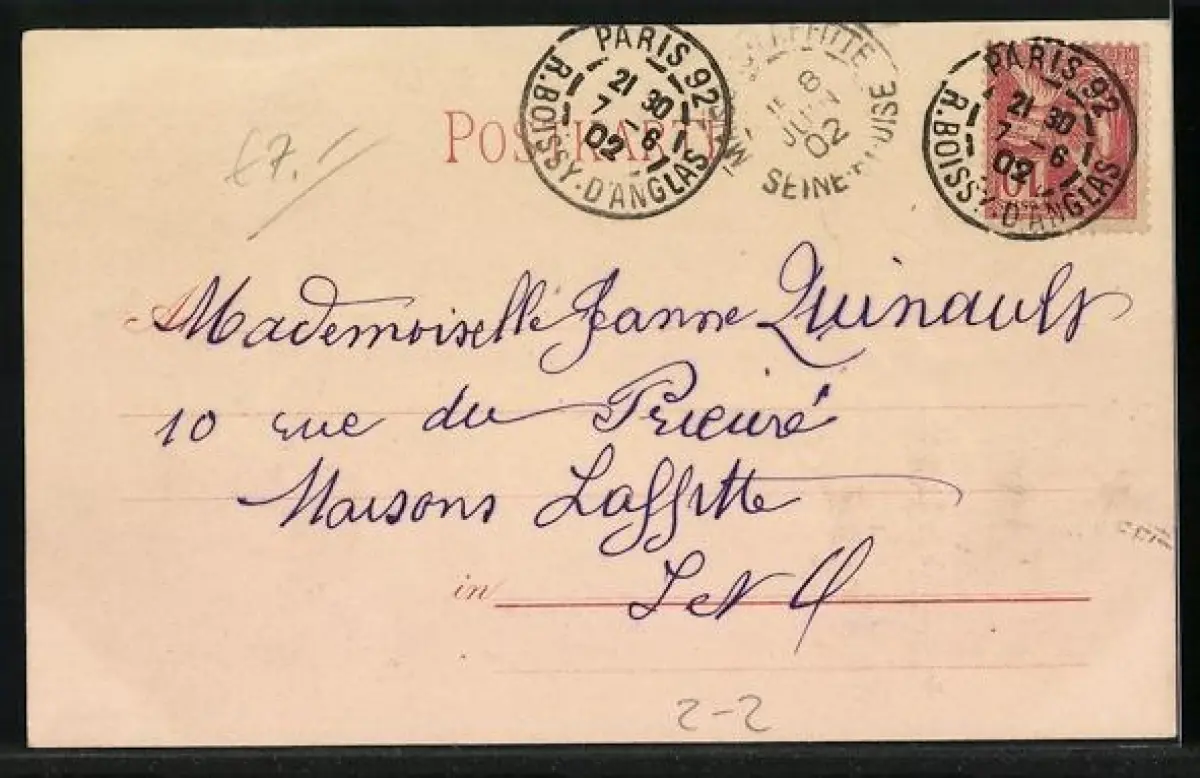 PARIS 92
R. BOISSY-D'ANGLAS
21 30
7 - 6
02
LAFFITTE
8
JUIN
02
SEINE-ET-OISE
PARIS 92
R. BOISSY-D'ANGLAS
21 30
7 - 6
02
10
POSTKARTE
£7.-
Mademoiselle Jeanne Quinault
10 rue du Prieuré
Maisons Laffitte
in
S et O
2-2